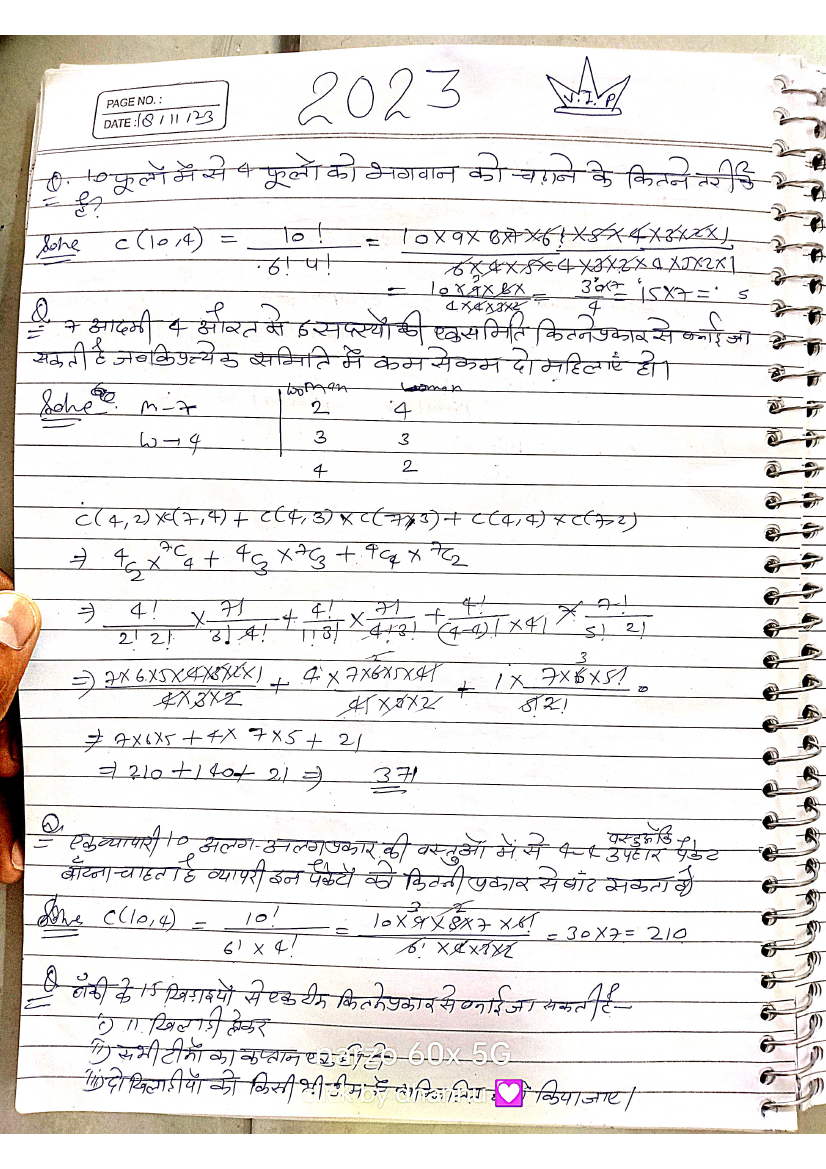 PAGE NO. :
DATE : 18/11/23
2023
V.I.P
Q. 10 फूलों में से 4 फूलों को भगवान को चढ़ाने के कितने तरीके
है?
Solve C(10,4) = 10! / 6! 4! = 10×9×8×7×6!×5×4×3×2×1 / 6×4×5×4×3×2×4×3×2×1
= 15×7 =
Q 7 आदमी 4 औरत से 6 सदस्यों की एक समिति कितने प्रकार से बनाई जा
सकती है जबकि प्रत्येक समिति में कम से कम दो महिलाएं हो।
Solve M-7 women
W→4 2 4
3 3
4 2
C(4,2)×C(7,4) + C(4,3)×C(7,3) + C(4,4)×C(7,2)
⇒ 4C2 × 7C4 + 4C3 × 7C3 + 4C4 × 7C2
⇒ 4! / 2! 2! × 7! / 3! 4! + 4! / 1! 3! × 7! / 4! 3! + 4! / (4-4)! × 4! × 7! / 5! 2!
⇒ 7×6×5×4×3×2×1 / 4×3×2 + 4 × 7×6×5×4! / 4!×3×2 + 1 × 7×6×5! / 5! 2!
⇒ 7×6×5 + 4×7×5 + 21
⇒ 210 + 140 + 21 ⇒ 371
Q. एक व्यापारी 10 अलग-अलग प्रकार की वस्तुओं में से 4-4 वस्तुओं के उपहार पैकेट
बाँटना चाहता है व्यापारी इन पैकेटों को कितनी प्रकार से बांट सकता है
Solve C(10,4) = 10! / 6! × 4! = 10×9×8×7×6! / 6! ×4×3×2 = 30×7 = 210
Q हॉकी के 15 खिलाड़ियों से एक टीम कितने प्रकार से बनाई जा सकती है-
i) 11 खिलाड़ी लेकर
ii) सभी टीमों का कप्तान एक ही हो
iii) दो खिलाड़ीयों को किसी भी टीम में किया जाए।
60x 5G